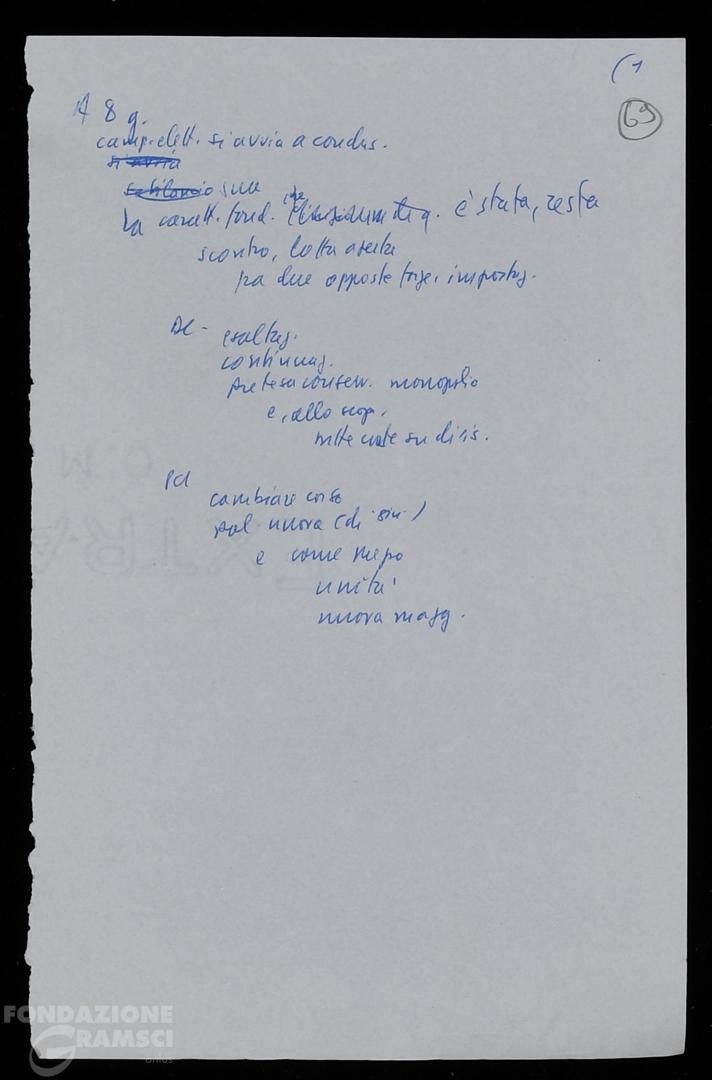 (1
69
A 8 g.
camp. elett. si avvia a conclus.
si avvia
se bilancio
La caratt. fond. che è stata, resta
scontro, lotta aperta
tra due opposte forze, impostaz.
DC - esaltaz.
continuaz.
pretesa conserv. monopolio
e, allo scopo,
PCI
cambiare corso
pol nuova (di sin.)
e come
unità
nuova magg.
FONDAZIONE
GRAMSCI
onlus